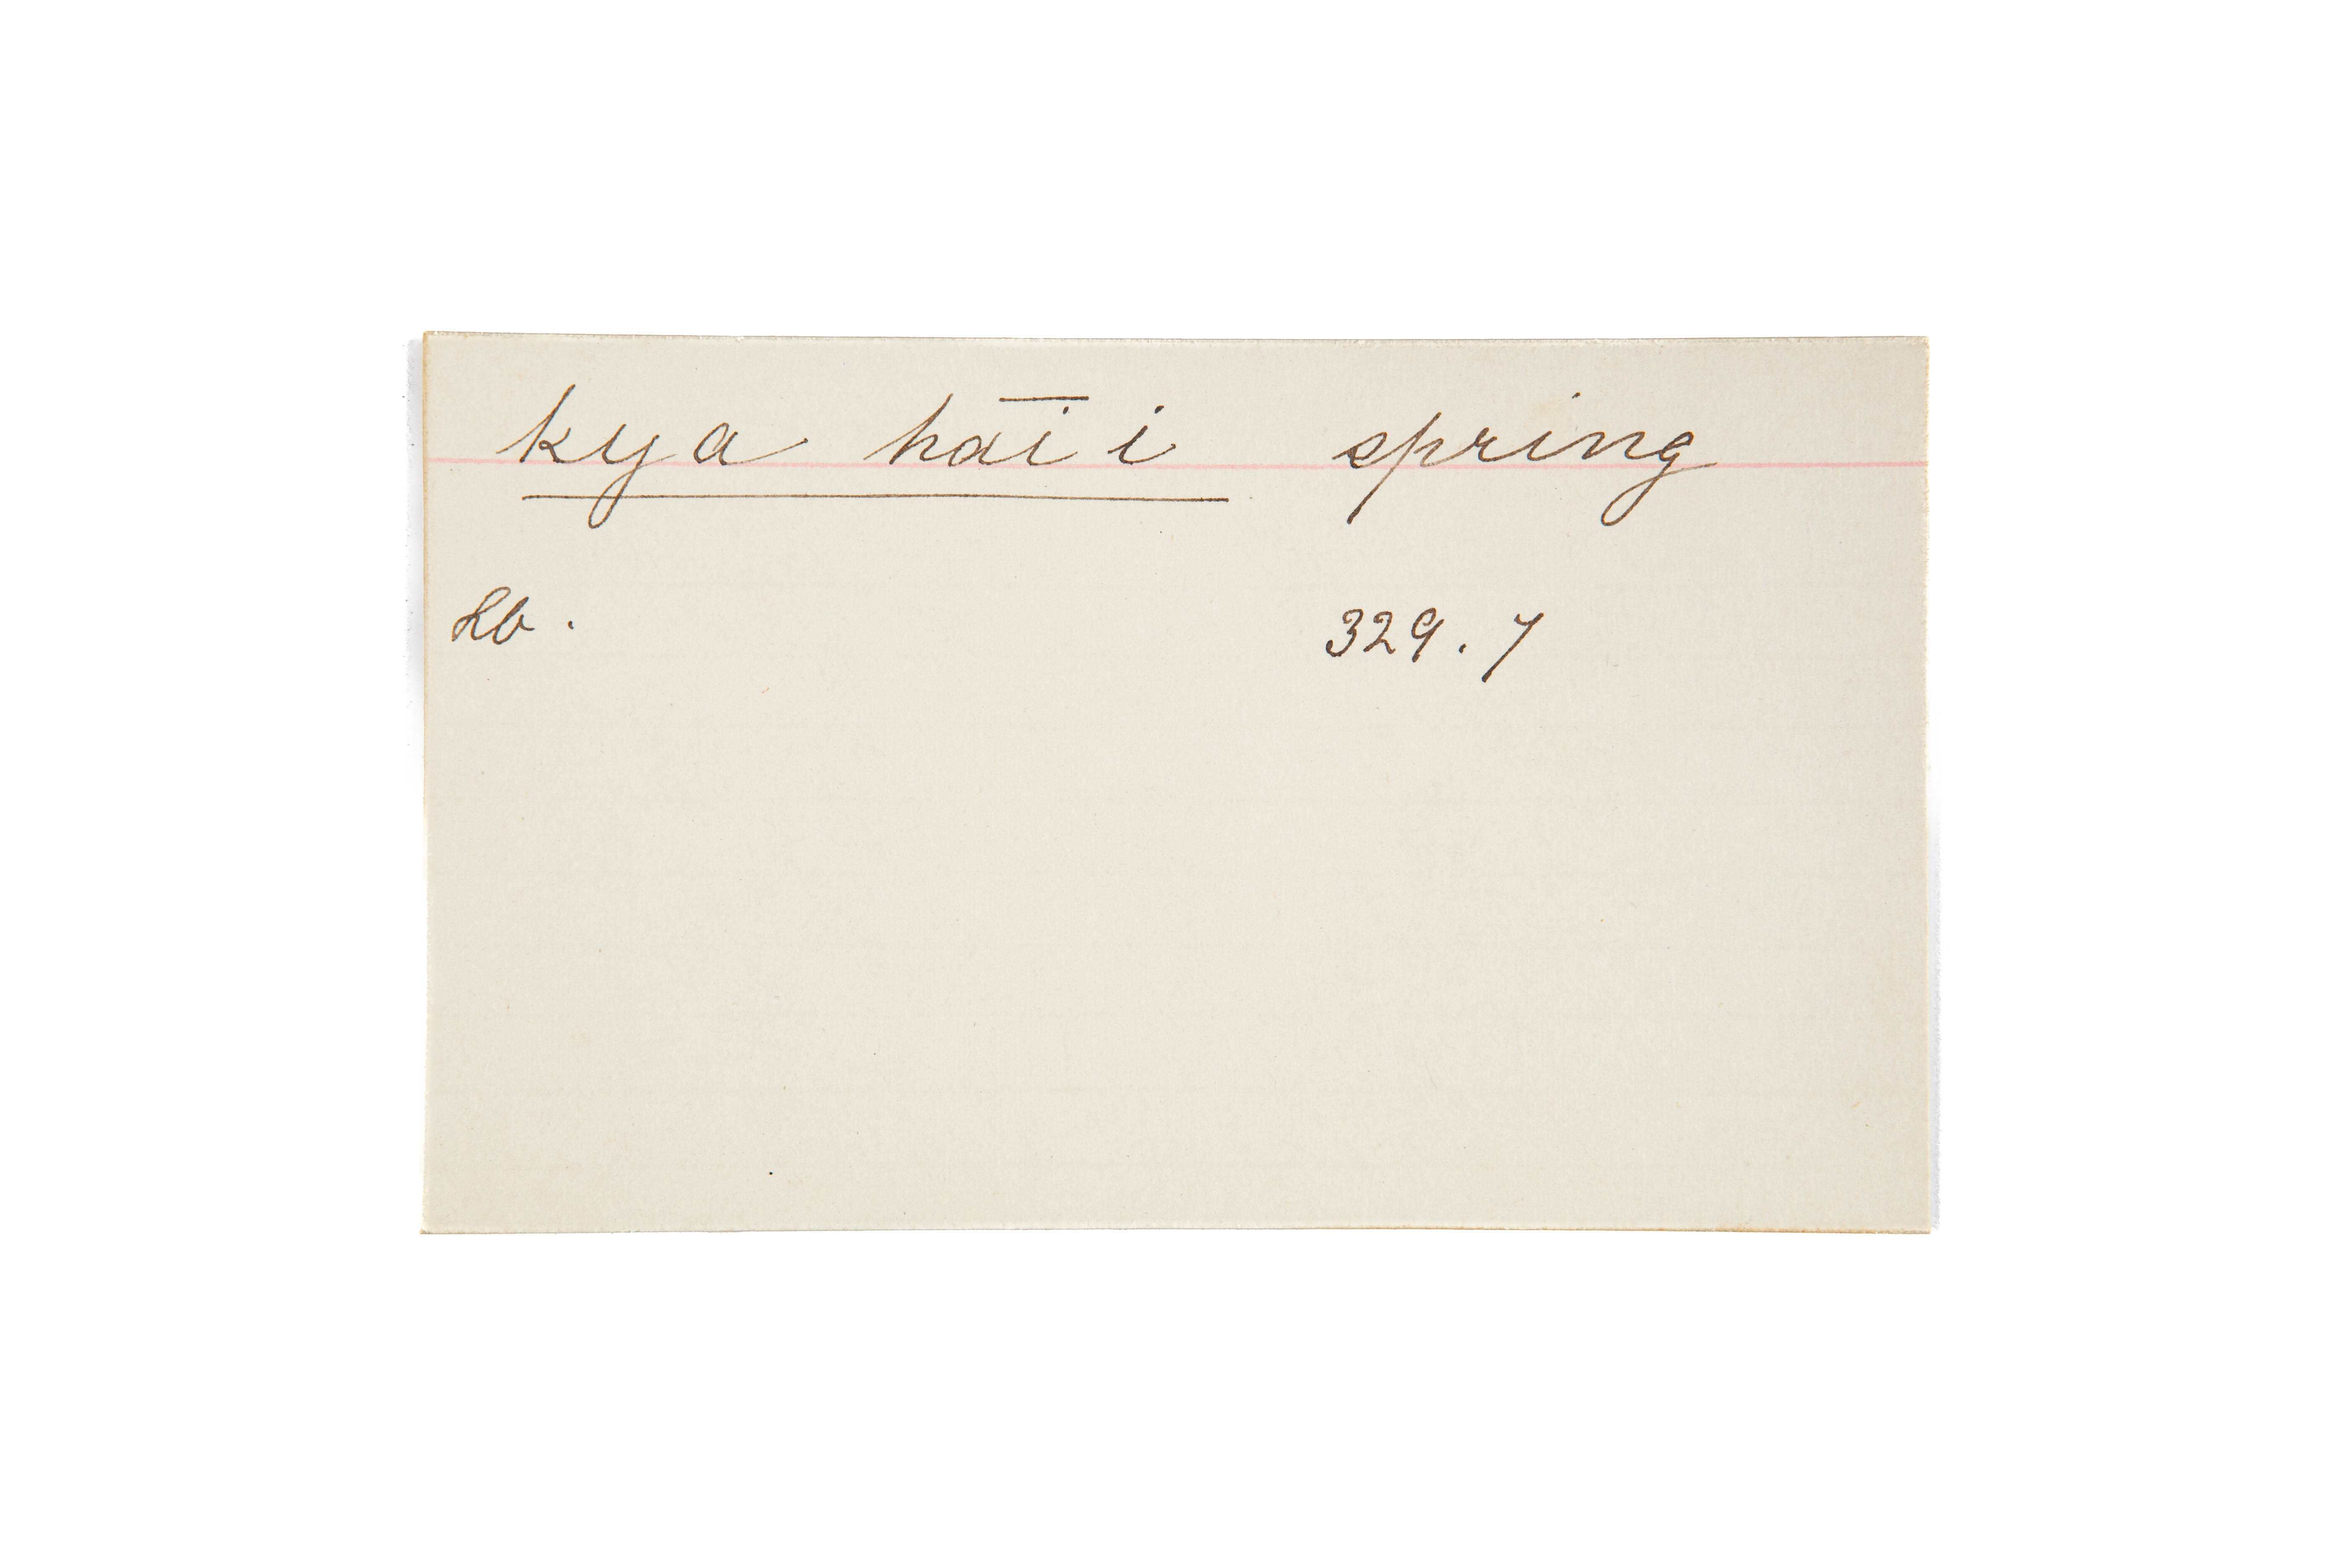 kya ha͞i i spring
Lb. 329.7